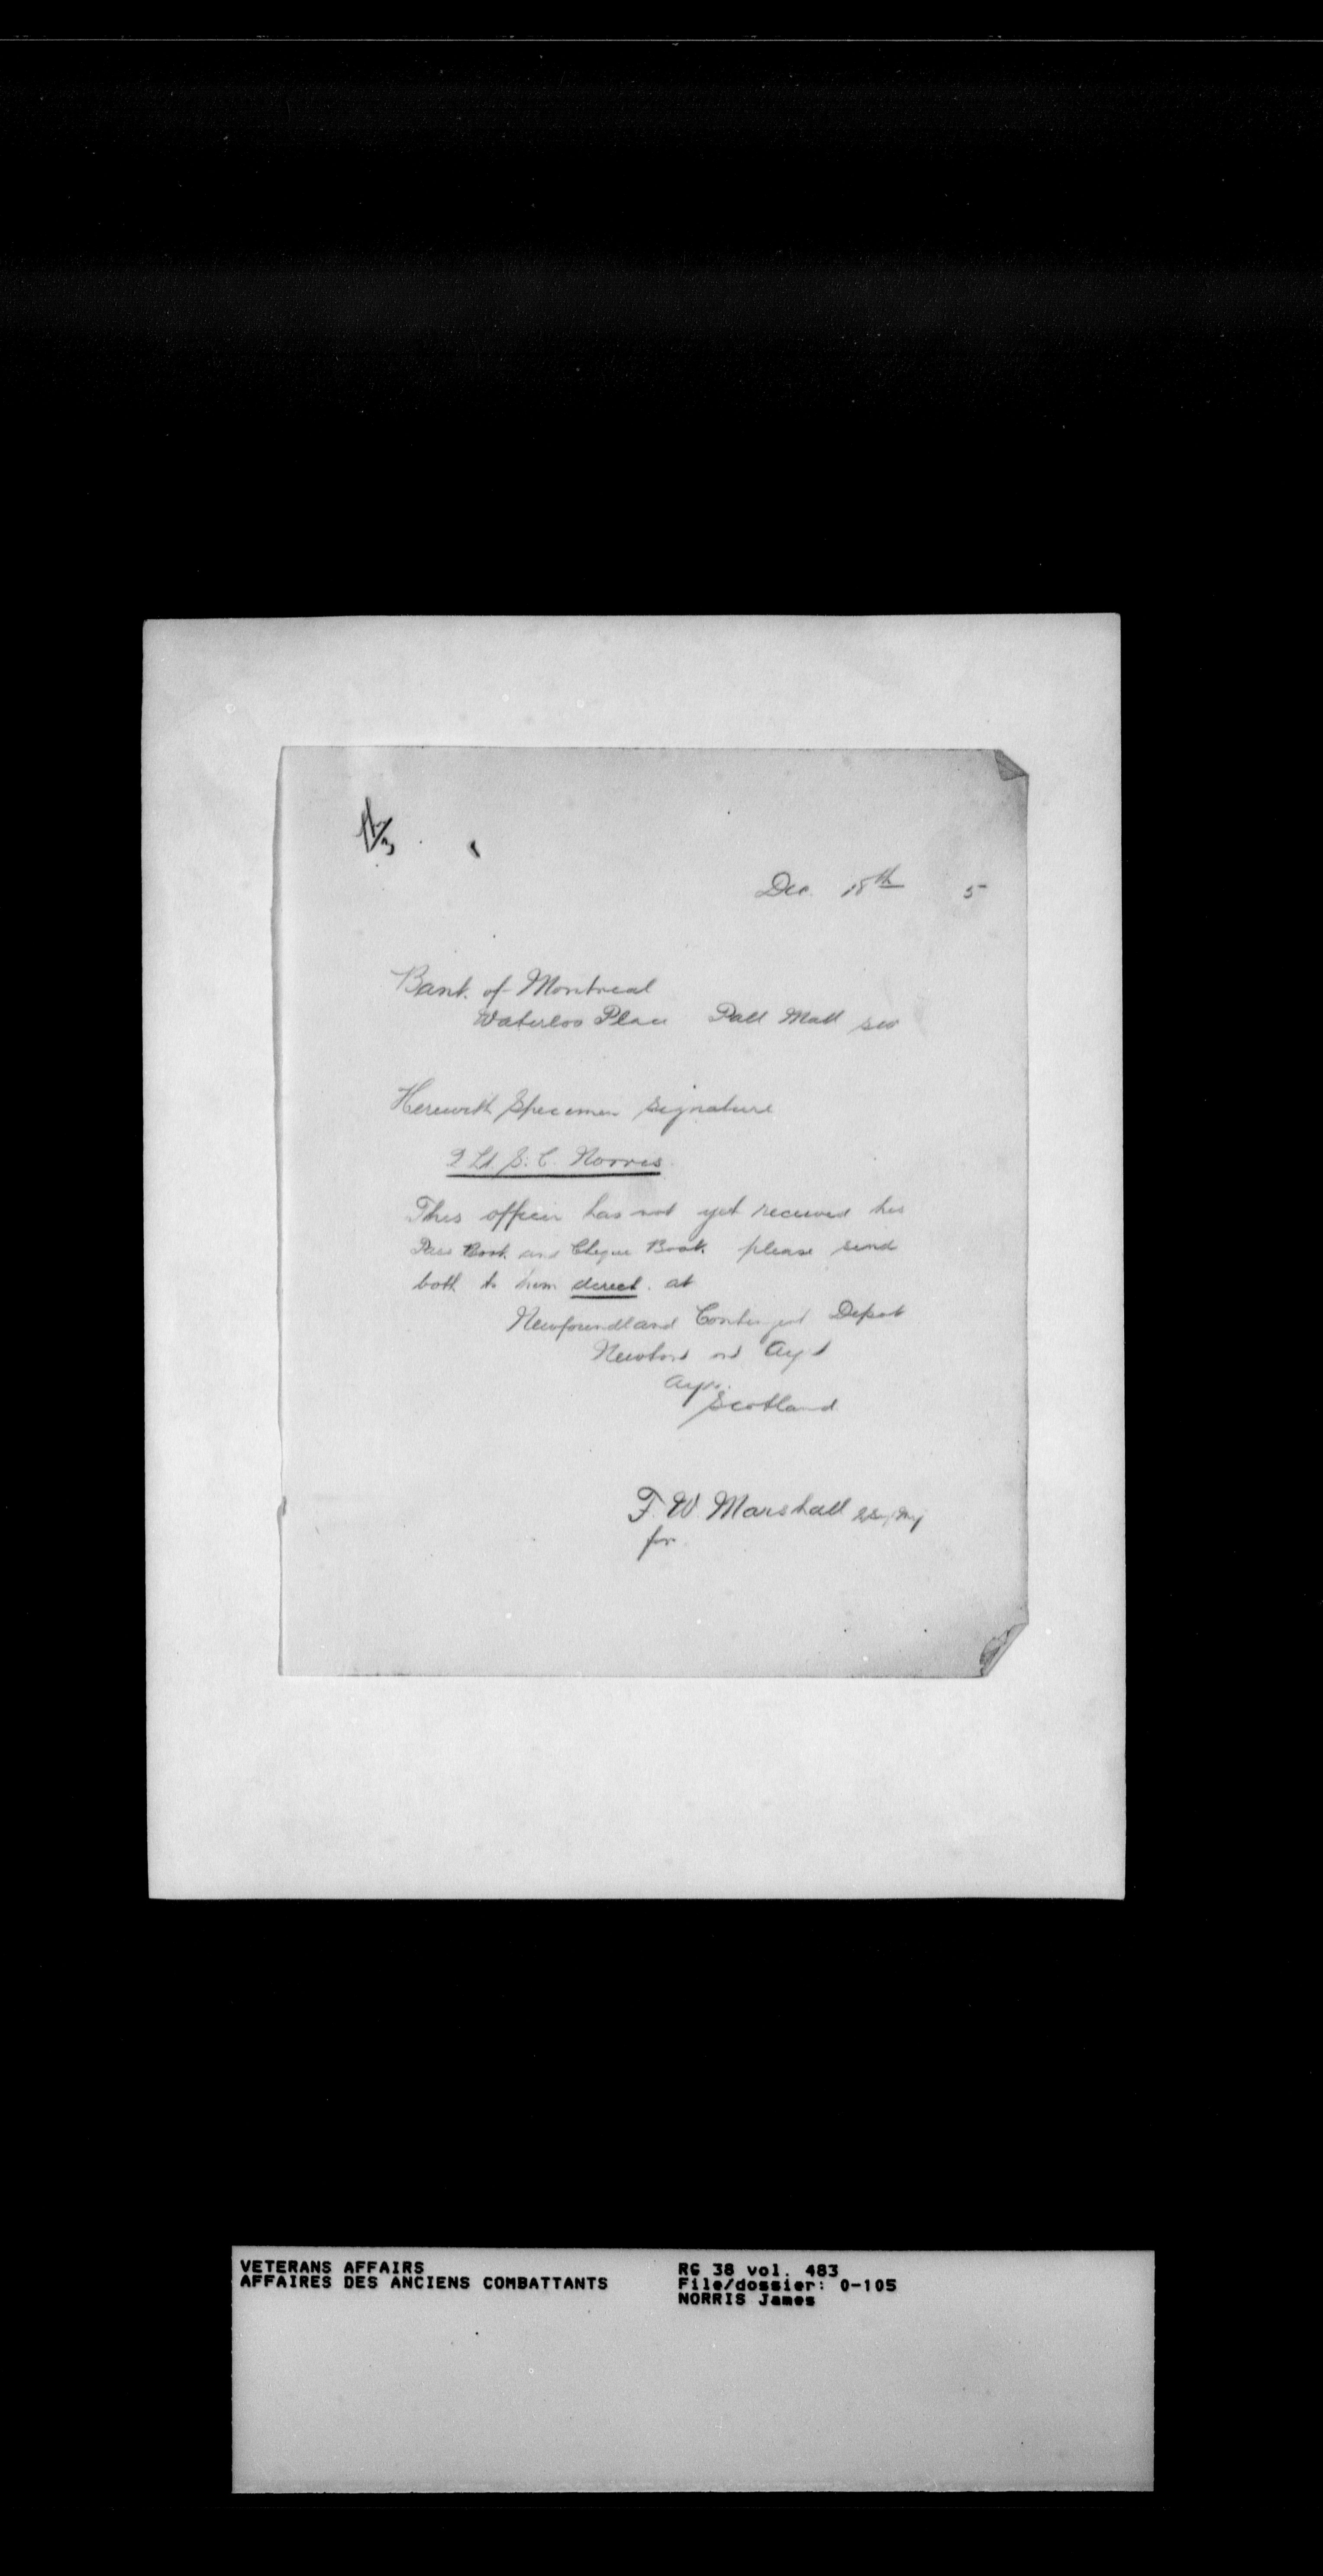 Dec. 18th 5
Bank of Montreal
Waterloo Place Pall Mall SW
Herewith Specimen Signature
2 Lt. S. C. Norris
This officer has not yet received his
Pass Book and Cheque Book please send
both to him direct. at
Newfoundland Contingent Depot
Newton on Ayr
Ayr.
Scotland
F. W. Marshall
for
VETERANS AFFAIRS
AFFAIRES DES ANCIENS COMBATTANTS
RG 38 vol. 483
File/dossier: 0-105
NORRIS James